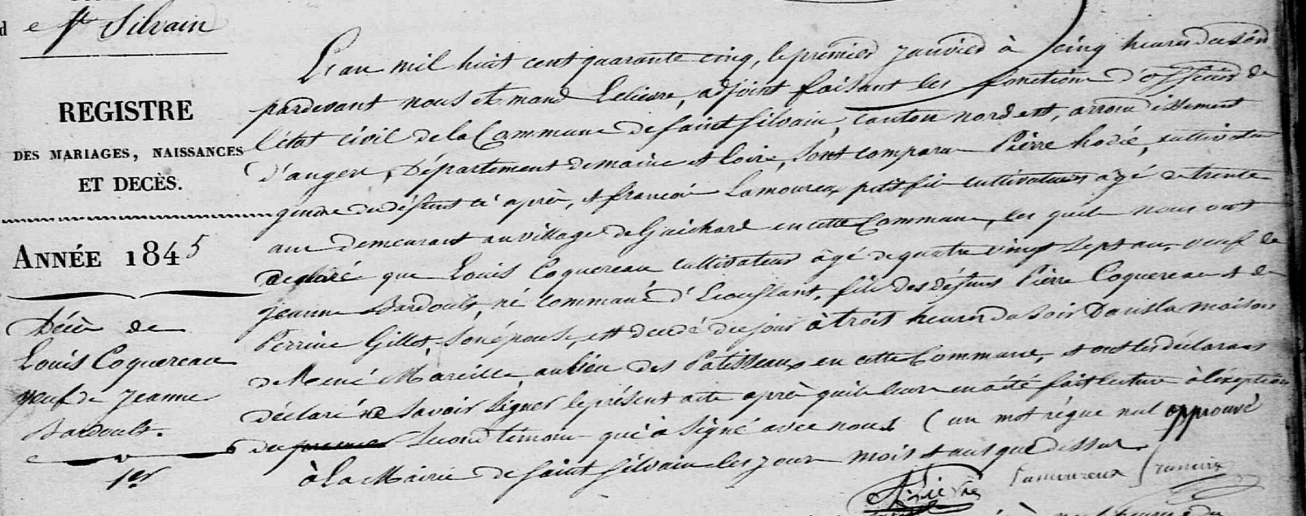 d e St Silvain
REGISTRE
DES MARIAGES, NAISSANCES
ET DECÈS.
ANNÉE 1845
Décès de
Louis Coquereau
veuf de Jeanne
Bardoult.
1er
L'an mil huit cent quarante cinq, le premier janvier à cinq heures du soir
pardevant nous Armand Lelievre, adjoint faisant les fonctions d'officier de
l'état civil de la Commune de Saint Silvain, canton nord est, arrondissement
d'angers, Département de maine et Loire, sont comparu Pierre hodé, cultivateur
gendre du défunt ci après, et françois Lamoureux petit fils cultivateurs agé de trente
ans demeurant au village de Guichard en cette Commune, les quels nous ont
declaré que Louis Coquereau cultivateur âgé de quatre vingt sept ans, veuf de
jeanne Bardoult, né commune d'Ecouflant, fils des défunts Pierre Coquereau et de
Perrine Gillot, son épouse, est decedé ce jour à trois heures du soir Dans la maison
de René Mareille au lieu des Patisseaux en cette Commune, et ont les déclarans
déclaré ne savoir signer le présent acte après qu'il leur en a été fait lecture à l'exeption
du premier second témoin qui a signé avec nous (un mot régué nul approuvé
à la Mairie de Saint Silvain les jour mois et an que dessus.
Lelievre Lamoureux francoix